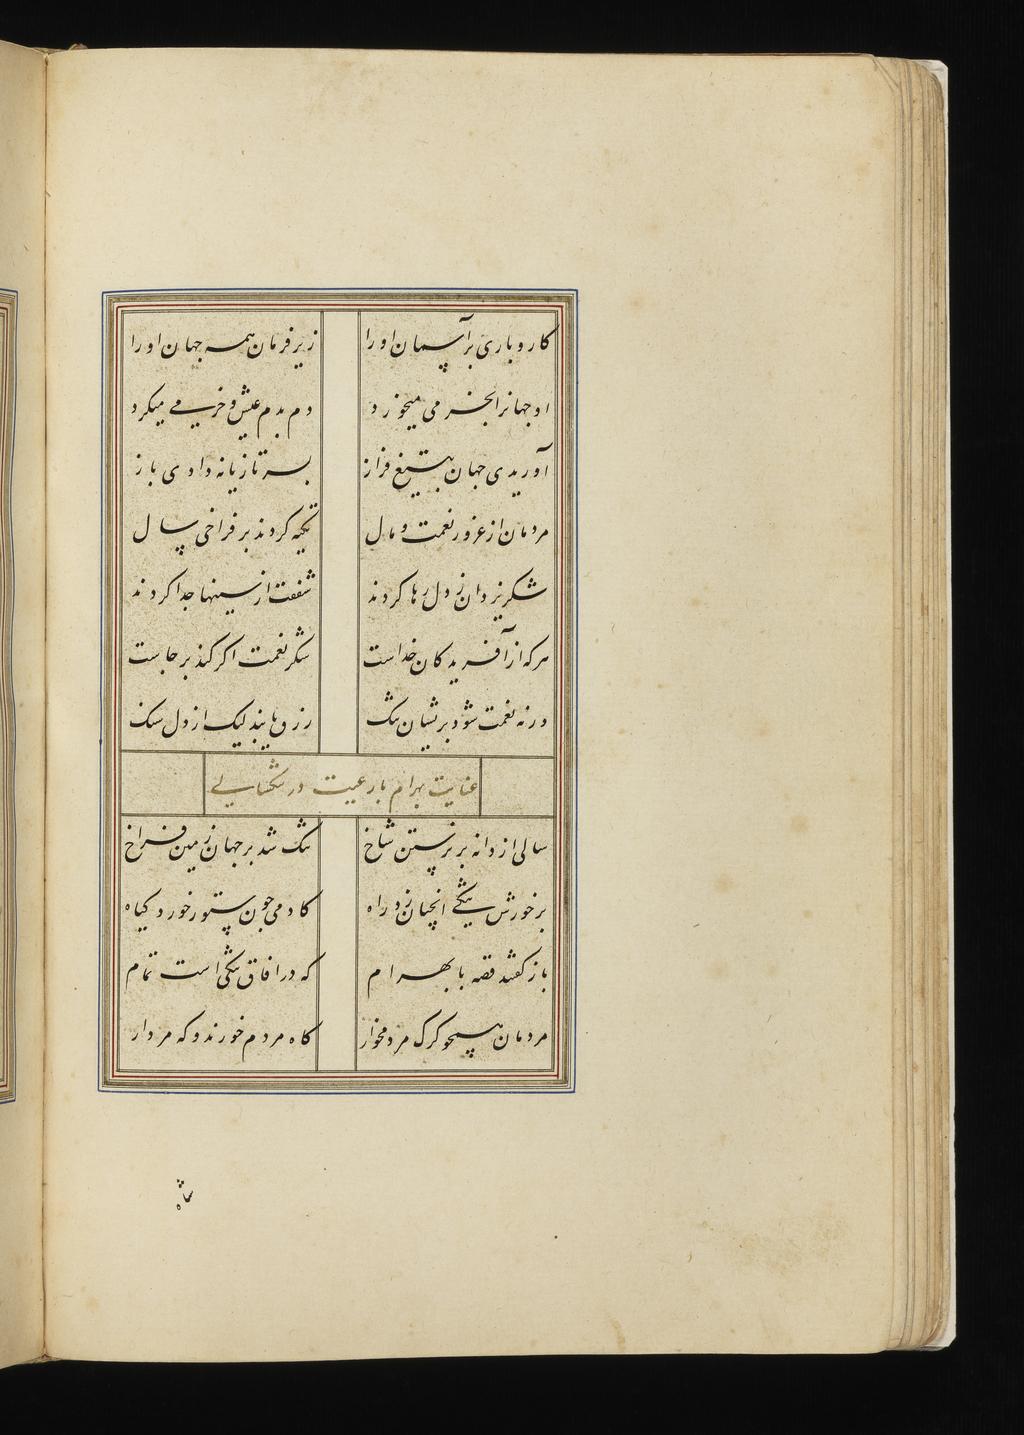 کار و باری بر آسمان او را
زیر فرمان همه جهان او را
او جهانرا بخرمی میخورد
دم بدم عیش و خرمی میکرد
آوریدی جهان بتیغ فراز
بسر تازیانه دادی باز
مردمان از غرور نعمت و مال
تکیه کردند بر فراخی سال
شکر یزدان ز دل رها کردند
شفقت از سینها جدا کردند
هر که از آفریدکان خداست
شکر نعمت اکر کند برجاست
ورنه نعمت شود بریشان تنک
رزق یابند لیک از دل سنک
عنایت بهرام با رعیت در تنکسالی
سالی از دانه بر نرستن شاخ
تنک شد بر جهان زمین فراخ
بر خورش تنکیی انچنان زد راه
کادمی چون ستور خورد کیاه
باز کفتند قصه با بهرام
که در افاق تنکی است تمام
مردمان همچو کرک مردمخوار
کاه مردم خورند و که مردار
شاه